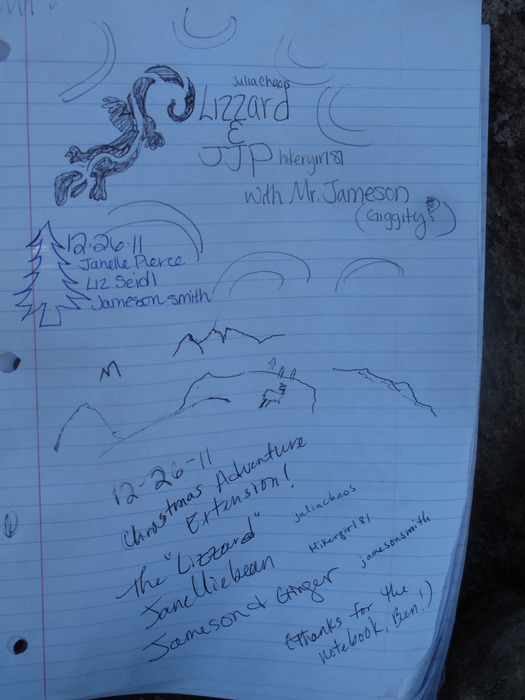 juliachaos
Lizzard
&
JJP hikergirl81
with Mr. Jameson
(Giggity?)
12·26·11
Janelle Pierce
Liz Seidl
Jameson Smith
12-26-11
Christmas Adventure
Extension!
The "Lizzard" juliachaos
Janelliebean Hikergirl81
Jameson & Ginger jamesonsmith
(thanks for the
notebook, Ben!)